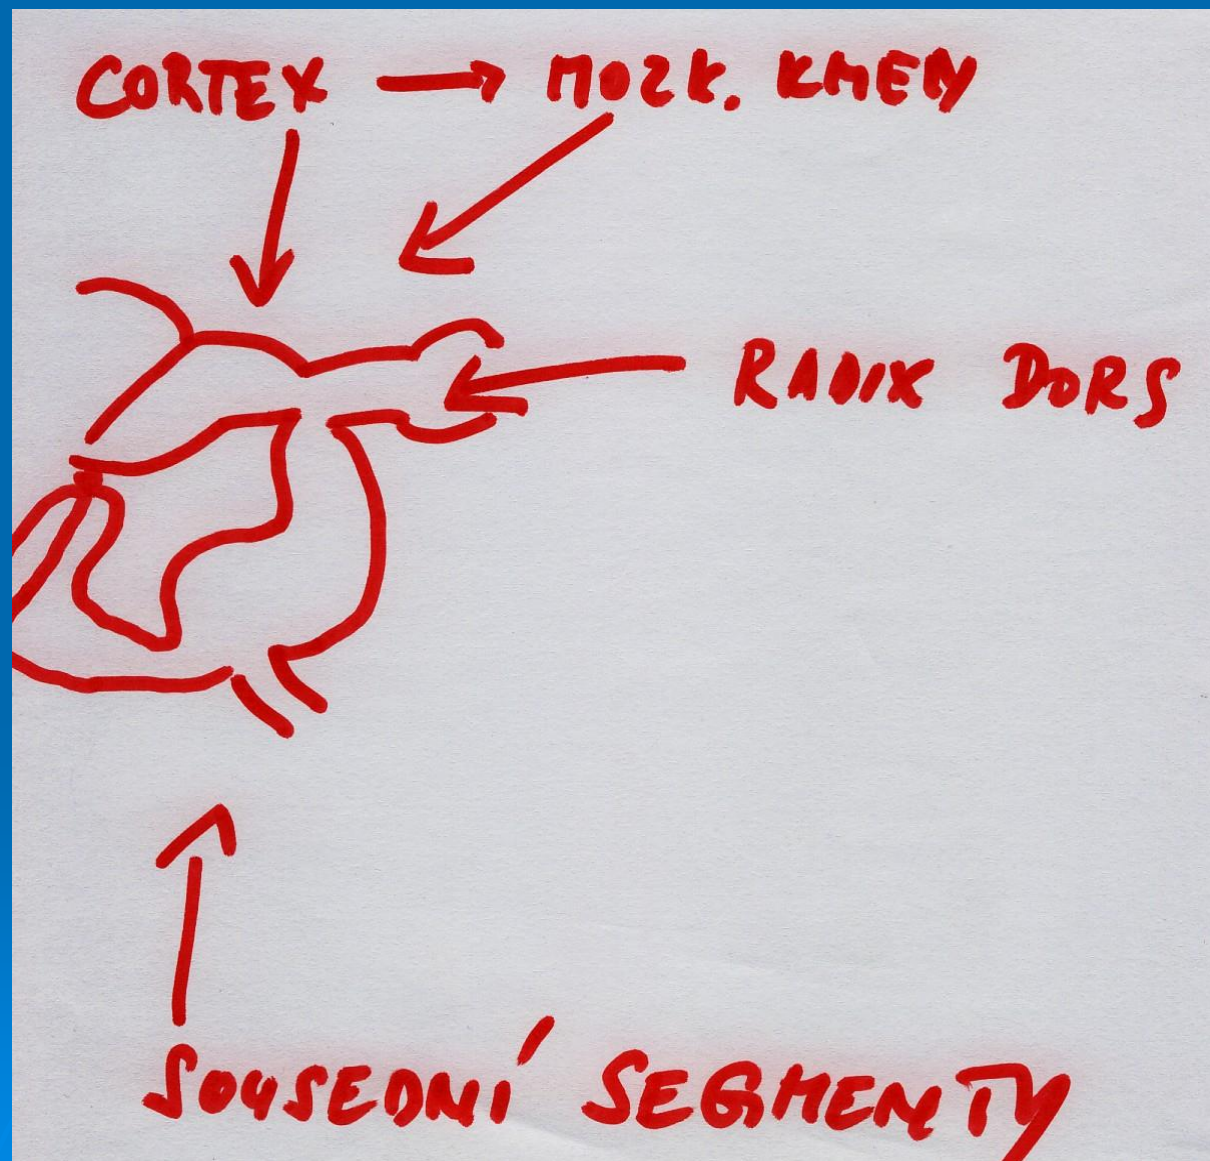 CORTEX → MOZK. KMEN
RADIX DORS
SOUSEDNÍ SEGMENTY